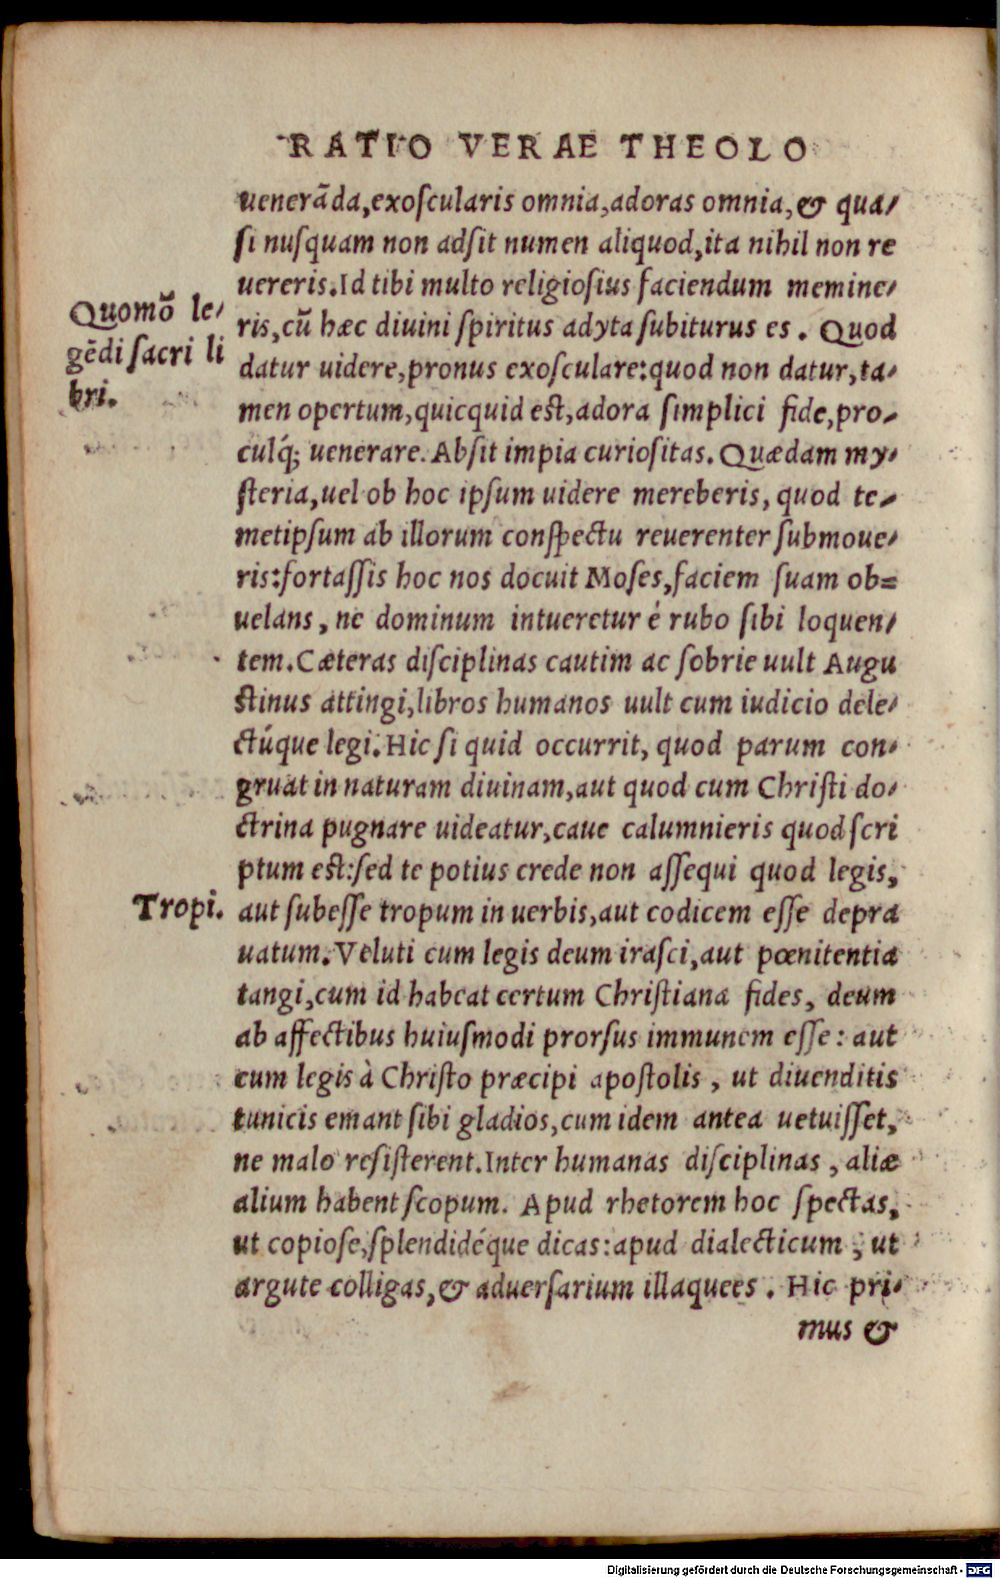 RATIO VERAE THEOLO
uenerãda,exoſcularis omnia,adoras omnia,& qua-
ſi nuſquam non adſit numen aliquod,ita nihil non re
uereris.Id tibi multo religioſius faciendum memine-
Quomõ le-
gẽdi ſacri li
bri.
ris,cũ hæc diuini ſpiritus adyta ſubiturus es. Quod
datur uidere,pronus exoſculare:quod non datur,ta-
men opertum,quicquid est,adora ſimplici fide,pro-
culq́; uenerare. Abſit impia curioſitas. Quædam my-
ſteria,uel ob hoc ipſum uidere mereberis, quod te-
metipſum ab illorum conſpectu reuerenter ſubmoue-
ris:fortaſſis hoc nos docuit Moſes,faciem ſuam ob=
uelans, ne dominum intueretur é rubo ſibi loquen-
tem.Cæteras diſciplinas cautim ac ſobrie uult Augu
stinus attingi,libros humanos uult cum iudicio dele-
ctúque legi. Hic ſi quid occurrit, quod parum con-
gruat in naturam diuinam,aut quod cum Chriſti do-
ctrina pugnare uideatur,caue calumnieris quod ſcri
ptum est:ſed te potius crede non aſſequi quod legis,
Tropi.
aut ſubeſſe tropum in uerbis,aut codicem eſſe depra
uatum.Veluti cum legis deum iraſci,aut pœnitentia
tangi,cum id habeat certum Chriſtiana fides, deum
ab affectibus huiuſmodi prorſus immunem eſſe: aut
cum legis à Chriſto præcipi apoſtolis, ut diuenditis
tunicis emant ſibi gladios,cum idem antea uetuiſſet,
ne malo reſiſterent.Inter humanas diſciplinas, aliæ
alium habent ſcopum. Apud rhetorem hoc ſpectas,
ut copioſe,ſplendidéque dicas:apud dialecticum, ut
argute colligas,& aduerſarium illaquees. Hic pri-
mus &
Digitalisierung gefördert durch die Deutsche Forschungsgemeinschaft - DFG